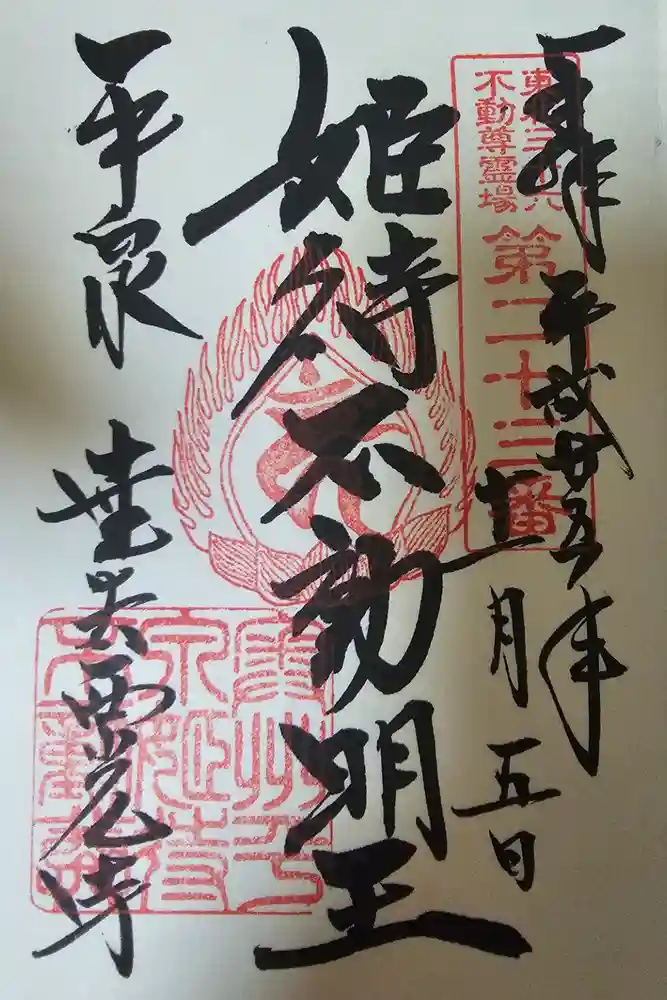 奉拝 平成廿五年
十一月五日
東北三十六
不動尊霊場
第二十三番
姫待不動明王
平泉 達谷西光寺